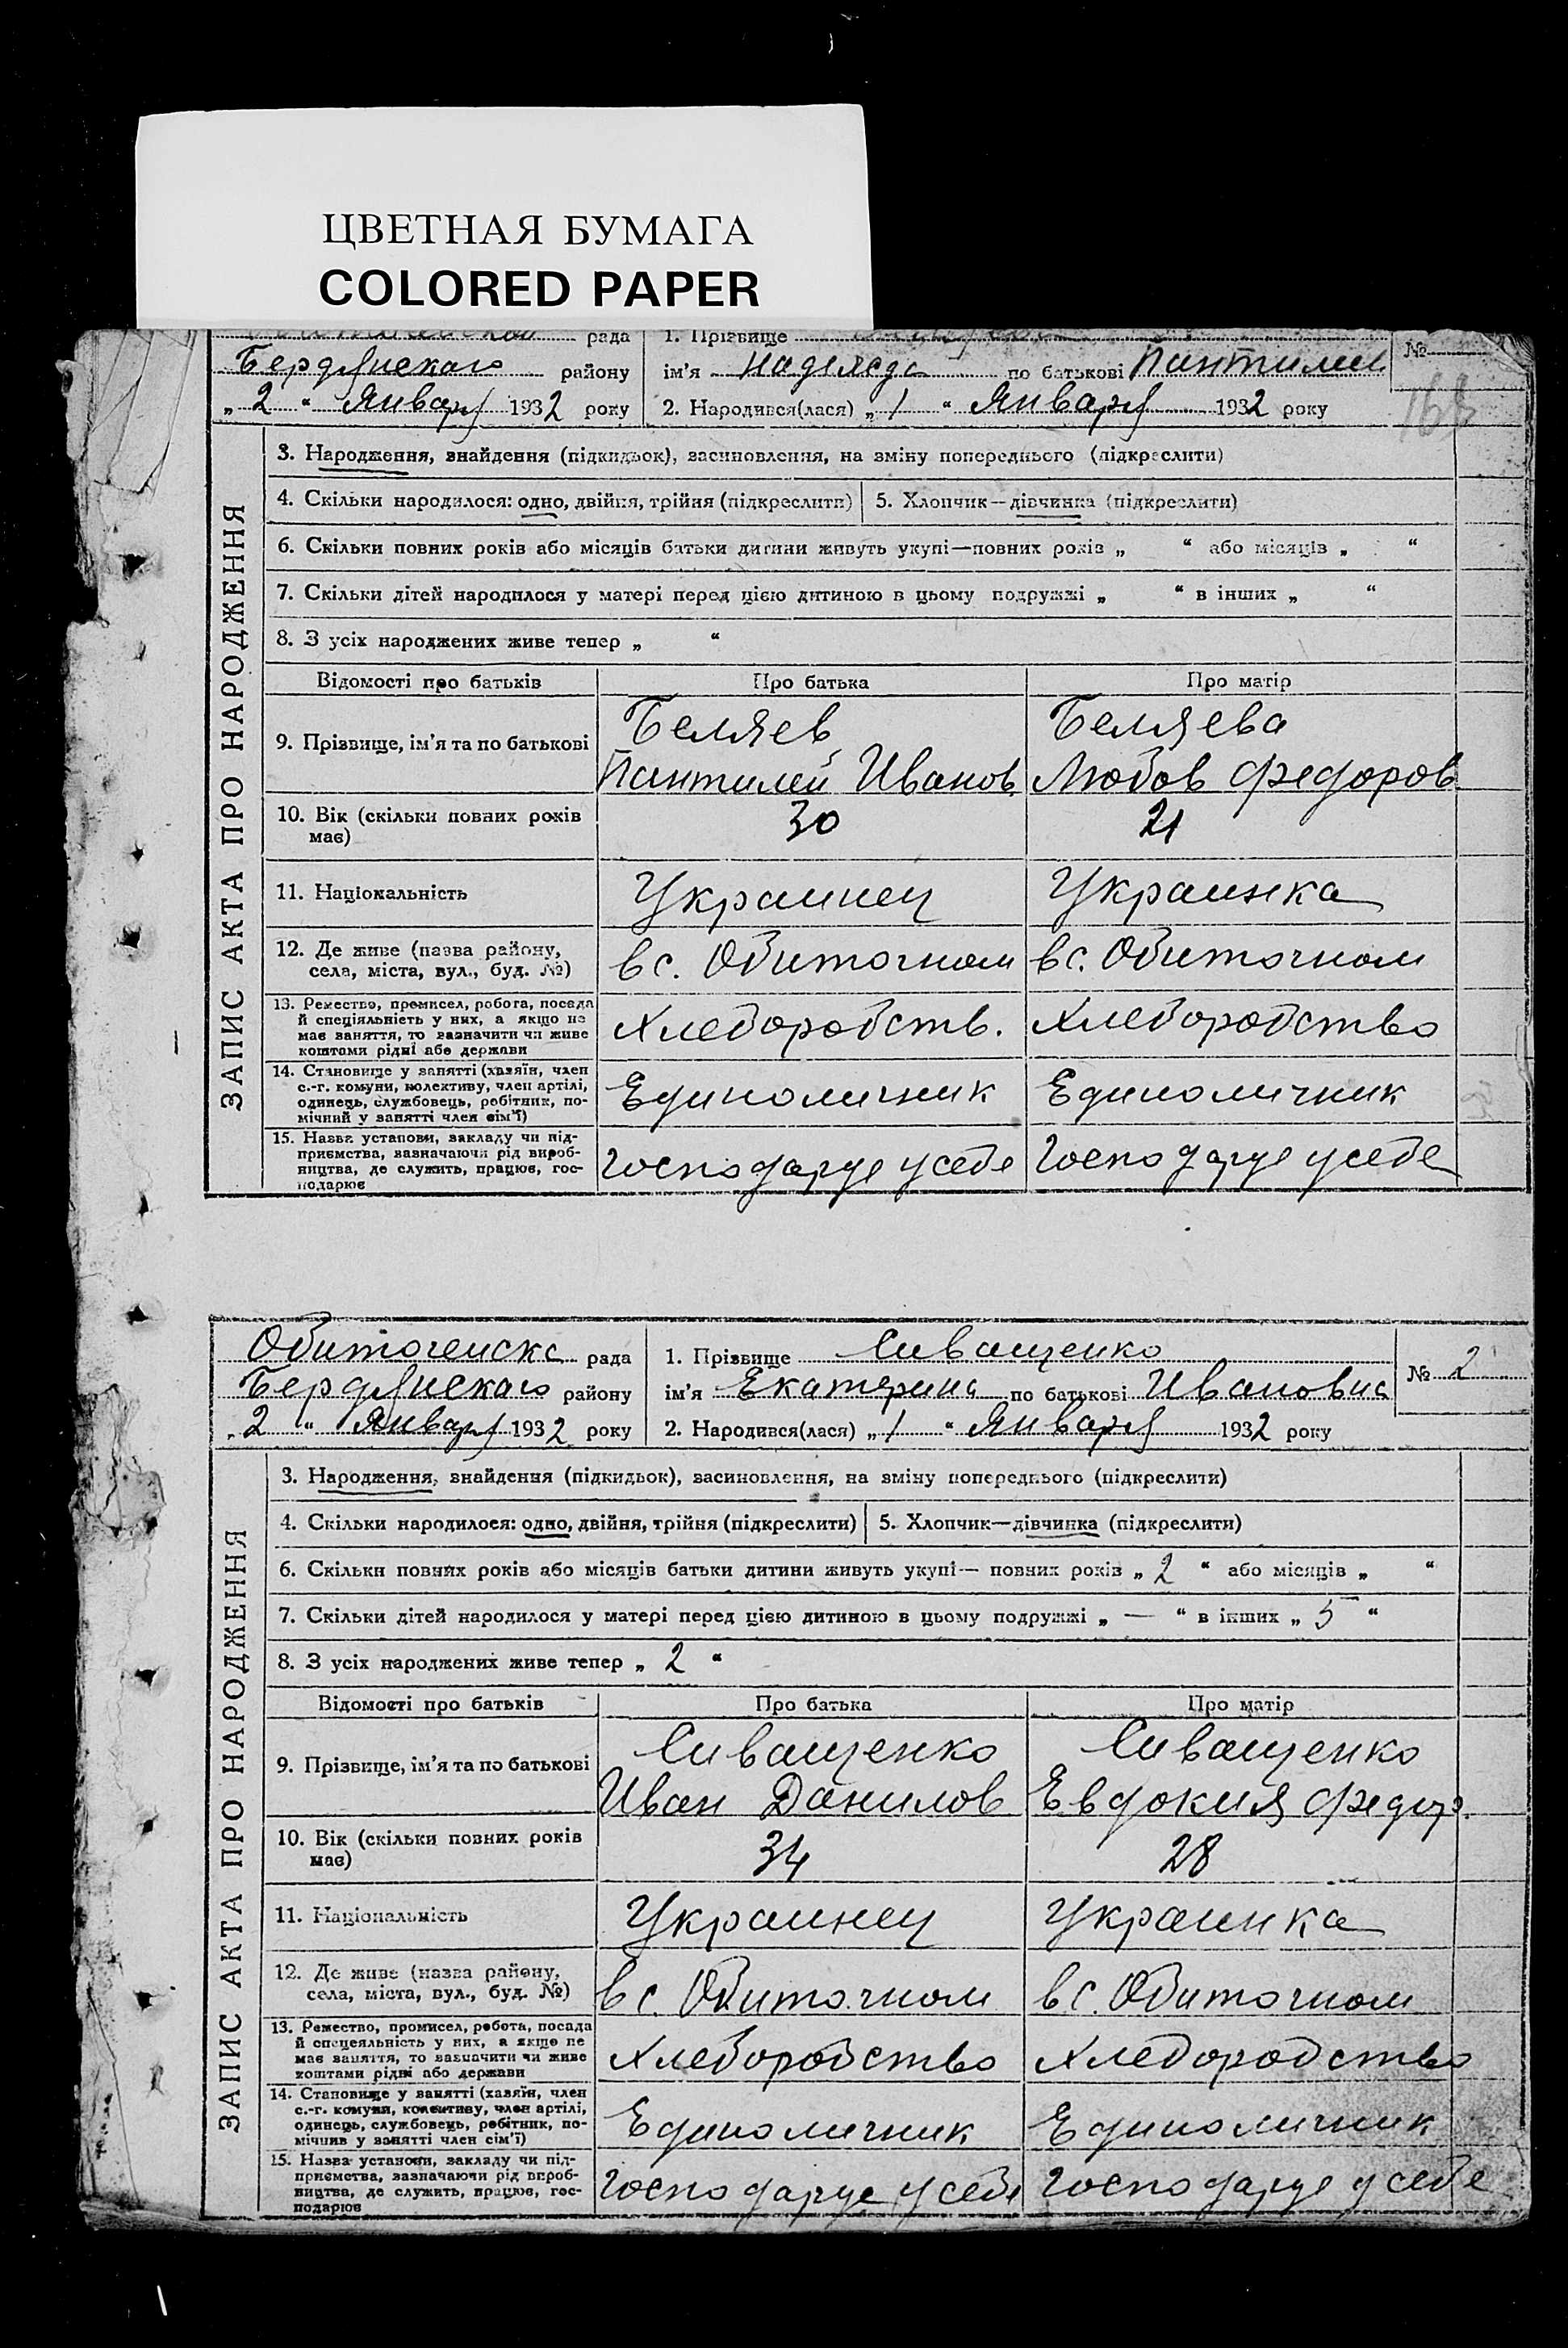 ЦВЕТНАЯ БУМАГА
COLORED PAPER
рада
1. Прізвище
Бердянскаго району
ім'я Надежда по батькові Пантилей
№
„2“ Январ 1932 року
2. Народився(лася) „1“ Января 1932 року
ЗАПИС АКТА ПРО НАРОДЖЕННЯ
3. Народження, знайдення (підкидьок), засиновлення, на зміну попереднього (підкреслити)
4. Скільки народилося: одно, двійня, трійня (підкреслити)
5. Хлопчик—дівчинка (підкреслити)
6. Скільки повних років або місяців батьки дитини живуть укупі—повних років „ “ або місяців „ “
7. Скільки дітей народилося у матері перед цією дитиною в цьому подружжі „ “ в інших „ “
8. З усіх народжених живе тепер „ “
Відомості про батьків
Про батька
Про матір
9. Прізвище, ім'я та по батькові
Беляев
Пантилей Иванов.
Беляева
Любов Федоров
10. Вік (скільки повних років
має)
30
21
11. Національність
Украинец
Украинка
12. Де живе (назва району,
села, міста, вул., буд. №)
в с. Обиточном
в с. Обиточном
13. Ремество, промисел, робота, посада
й спеціяльність у них, а якщо не
має заняття, то зазначити чи живе
коштами рідні або держави
Хлеборобств.
Хлеборобство
14. Становище у занятті (хазяїн, член
с.-г. комуни, колективу, член артілі,
одинець, службовець, робітник, по-
мічний у занятті член сім'ї)
Единоличник
Единоличник
15. Назва установи, закладу чи під-
приємства, зазначаючи рід вироб-
ництва, де служить, працює, гос-
подарює
Господарує у себе
Господарує у себе
Обиточенска рада
1. Прізвище Сиващенко
№ 2
Бердянскаго району
ім'я Екатерина по батькові Ивановна
„2“ Январ 1932 року
2. Народився(лася) „1“ Января 1932 року
ЗАПИС АКТА ПРО НАРОДЖЕННЯ
3. Народження, знайдення (підкидьок), засиновлення, на зміну попереднього (підкреслити)
4. Скільки народилося: одно, двійня, трійня (підкреслити)
5. Хлопчик—дівчинка (підкреслити)
6. Скільки повних років або місяців батьки дитини живуть укупі— повних років „2“ або місяців „ “
7. Скільки дітей народилося у матері перед цією дитиною в цьому подружжі „—“ в інших „5“
8. З усіх народжених живе тепер „2“
Відомості про батьків
Про батька
Про матір
9. Прізвище, ім'я та по батькові
Сиващенко
Иван Данилов
Сиващенко
Евдокия Федор.
10. Вік (скільки повних років
має)
34
28
11. Національність
Украинец
Украинка
12. Де живе (назва району,
села, міста, вул., буд. №)
в с. Обиточном
в с. Обиточном
13. Ремество, промисел, робота, посада
й спецеяльність у них, а якщо не
має заняття, то зазначити чи живе
коштами рідні або держави
Хлеборобство
Хлеборобство
14. Становище у занятті (хазяїн, член
с.-г. комуни, колективу, член артілі,
одинець, службовець, робітник, по-
мічний у занятті член сім'ї)
Единоличник
Единоличник
15. Назва установи, закладу чи під-
приємства, зазначаючи рід вироб-
ництва, де служить, працює, гос-
подарює
Господарує у себе
Господарує у себе